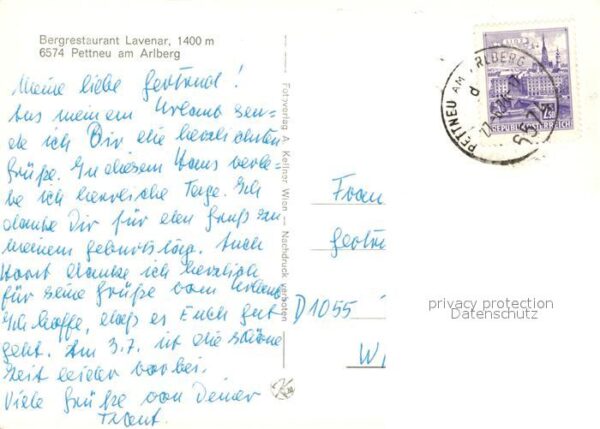 Bergrestaurant Lavenar, 1400 m
6574 Pettneu am Arlberg
Meine liebe Gertraud!
Aus meinem Urlaub sen-
de ich Dir die herzlichsten
Grüße. In diesem Haus verle-
be ich herrliche Tage. Ich
danke Dir für den Gruß zu
meinem Geburtstag. Auch
Horst danke ich herzlich
für seine Grüße vom Urlaub.
Ich hoffe, daß es Euch gut
geht. Am 3.7. ist die schöne
Zeit leider vorbei.
Viele Grüße von Deiner
Traut.
Fotoverlag A. Kellner Wien — Nachdruck verboten
PETTNEU AM ARLBERG
REPUBLIK ÖSTERREICH
6574
Frau
Gertra
D 1055
W
privacy protection
Datenschutz